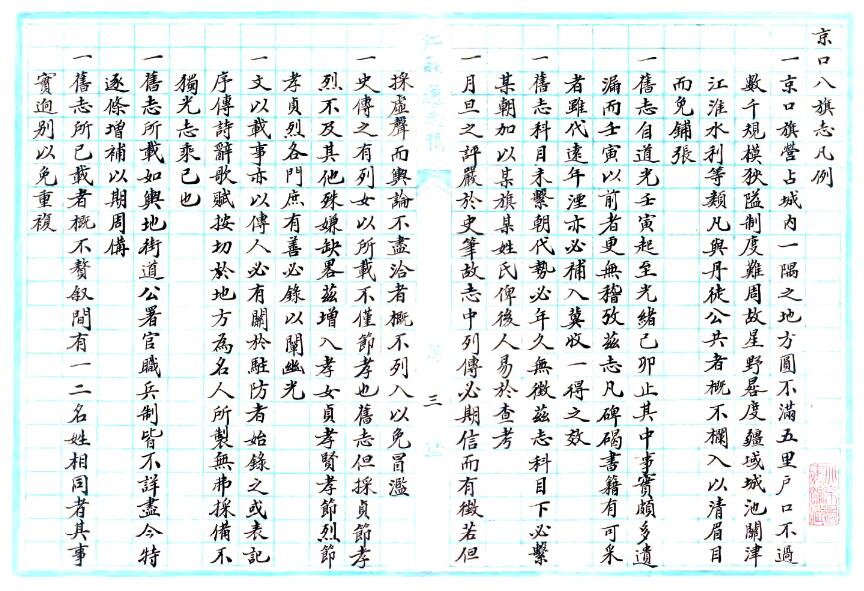 京口八旗志凡例
一京口旗營占城內一隅之地方圓不滿五里戶口不過
數千規模狹隘制度難周故星野晷度疆域城池關津
江淮水利等類凡與丹徒公共者概不欄入以清眉目
而免鋪張
一舊志自道光壬寅起至光緒己卯止其中事實頗多遺
漏而壬寅以前者更無稽攷茲志凡碑碣書籍有可采
者雖代遠年湮亦必補入冀收一得之效
一舊志科目未繫朝代勢必年久無徵茲志科目下必繫
某朝加以某旗某姓氏俾後人易於查考
一月旦之評嚴於史筆故志中列傳必期信而有徵若但
三
採虛聲而輿論不盡洽者概不列入以免冒濫
一史傳之有列女以所載不僅節孝也舊志但採貞節孝
烈不及其他殊嫌缺畧茲增入孝女貞孝賢孝節烈節
孝貞烈各門庶有善必錄以闡幽光
一文以載事亦以傳人必有關於駐防者始錄之或表記
序傳詩辭歌賦按切於地方為名人所製無弗採備不
獨光志乘已也
一舊志所載如輿地街道公署官職兵制皆不詳盡今特
逐條增補以期周備
一舊志所已載者概不贅叙間有一二名姓相同者其事
實迥別以免重複